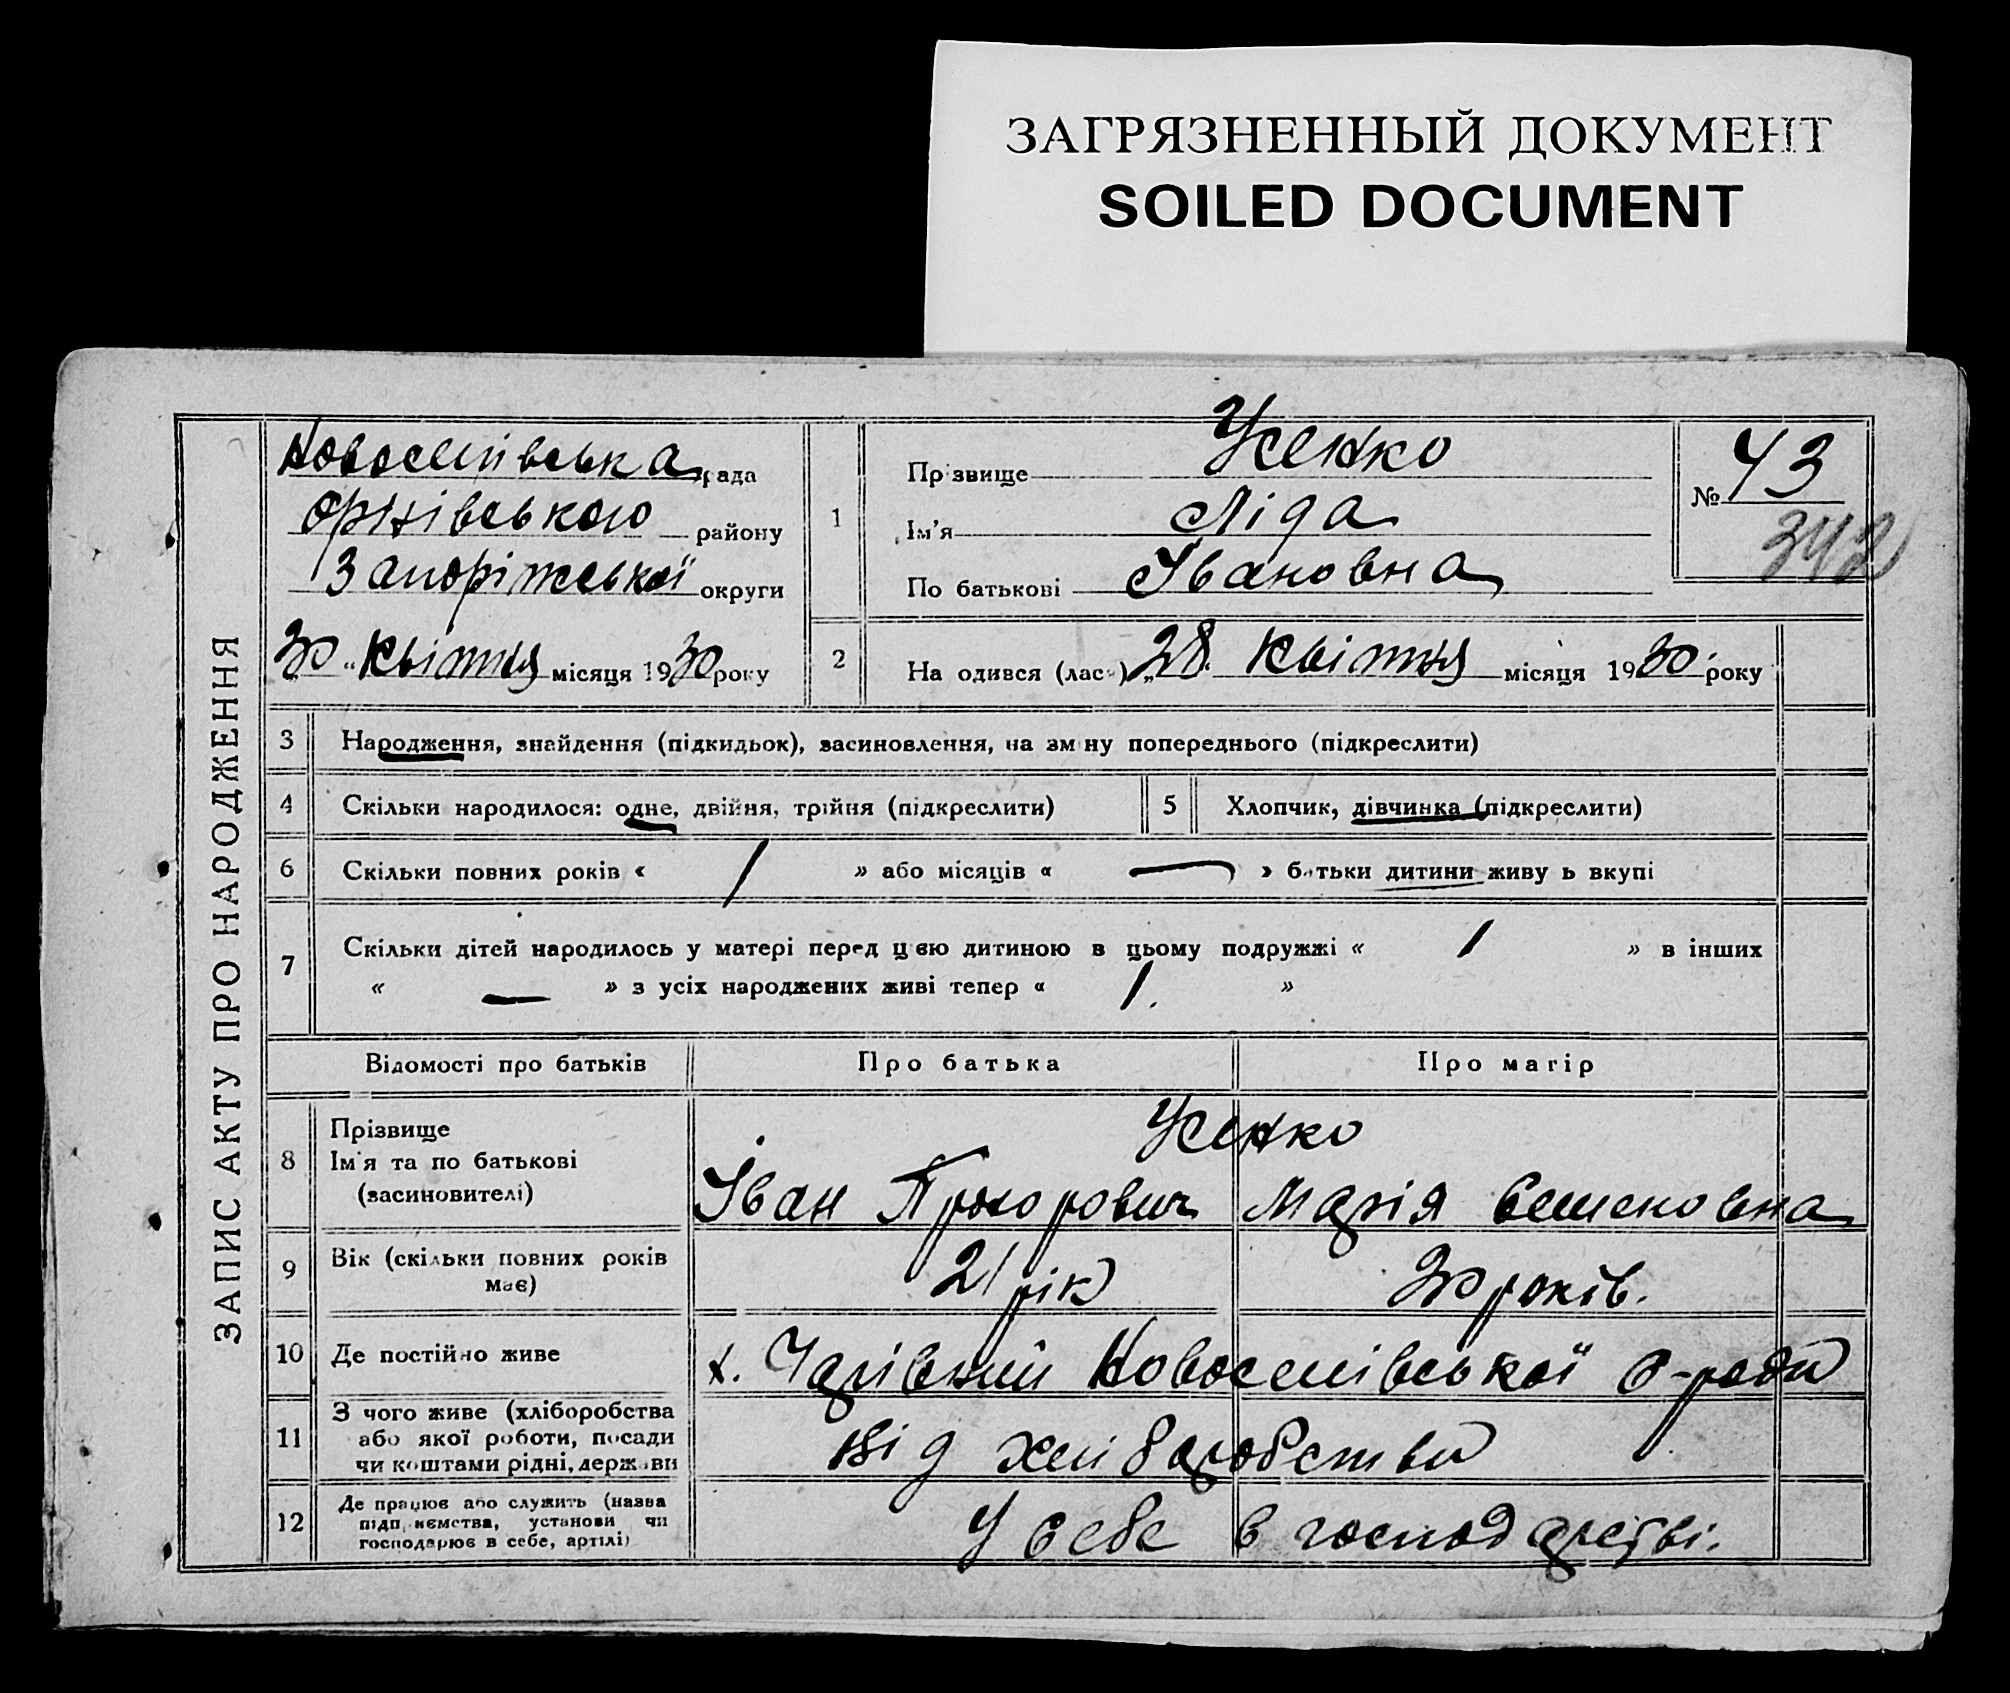 ЗАГРЯЗНЕННЫЙ ДОКУМЕНТ
SOILED DOCUMENT
ЗАПИС АКТУ ПРО НАРОДЖЕННЯ
Новоселівська рада
Оріхівського району
Запоріжської округи
30 " Квітня місяця 1930 року
1
Прізвище Усенко
Ім'я Ліда
По батькові Івановна
№ 43
342
2
На одився (лась) „28. Квітня місяця 1930. року
3 Народження, знайдення (підкидьок), засиновлення, на зміну попереднього (підкреслити)
4 Скільки народилося: одне, двійня, трійня (підкреслити)
5 Хлопчик, дівчинка (підкреслити)
6 Скільки повних років « 1 » або місяців « — » батьки дитини живуть вкупі
7 Скільки дітей народилось у матері перед цією дитиною в цьому подружжі « 1 » в інших
« — » з усіх народжених живі тепер « 1. »
Відомості про батьків Про батька Про матір
8 Прізвище
Ім'я та по батькові
(засиновителі)
Усенко
Іван Прохорович Марія Семеновна
9 Вік (скільки повних років
має)
21 рік 20 років.
10 Де постійно живе
х. Чарівний Новоселівської с-ради
11 З чого живе (хліборобства
або якої роботи, посади
чи коштами рідні, держави
від хліборобства
12 Де працює або служить (назва
підприємства, установи чи
господарює в себе, артілі)
У себе в господарстві.